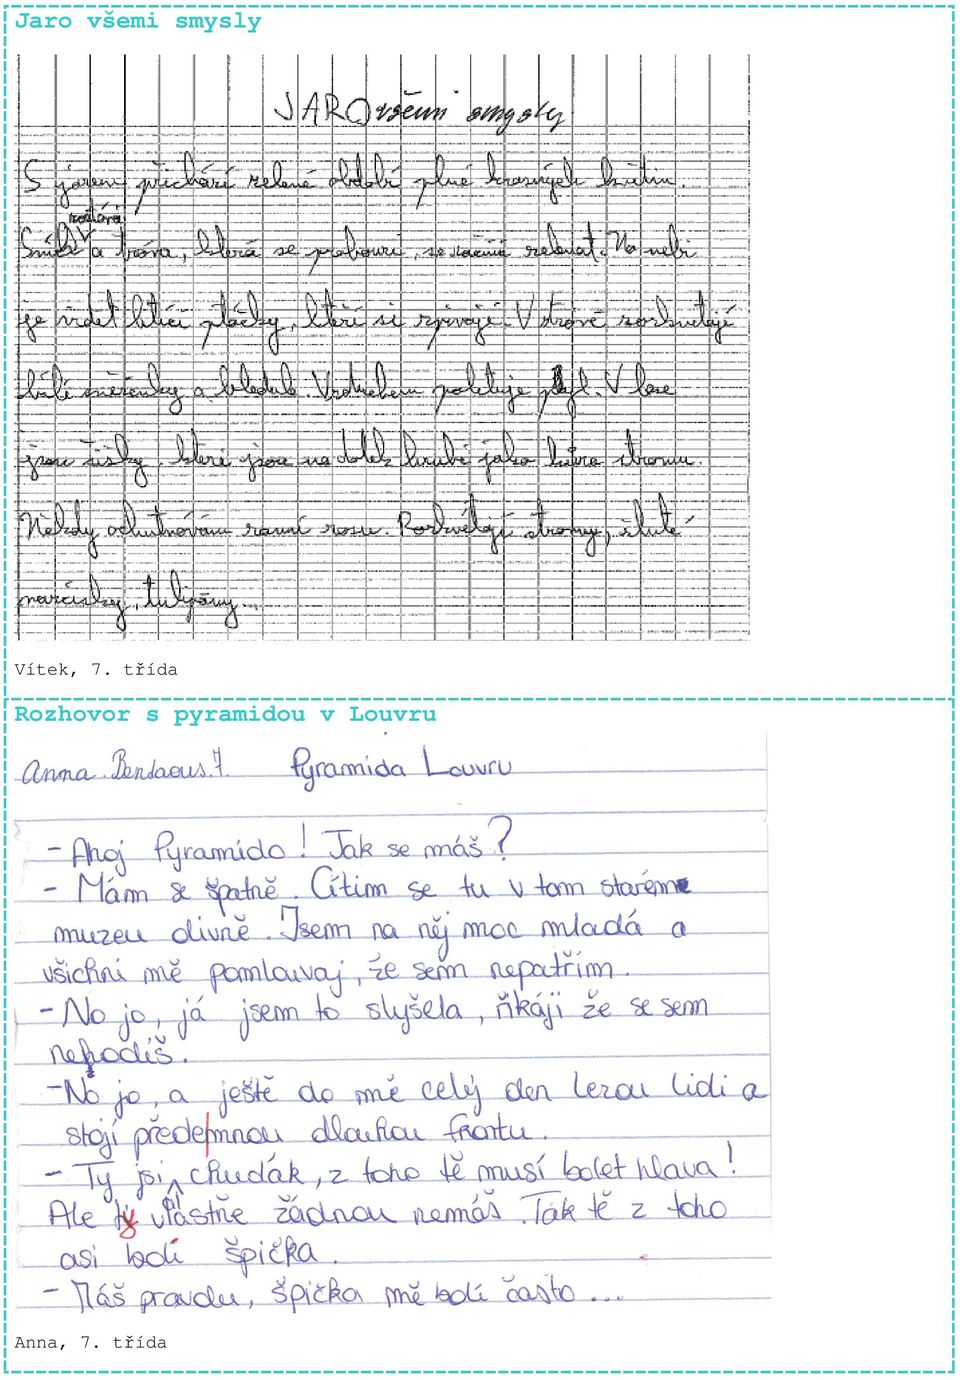 Jaro všemi smysly
JARO všemi smysly
S jarem přichází zelené období plné krásných květin.
roztává
Sníh V a tráva, která se probouzí, se začíná zelenat. Na nebi
je vidět letící ptáčky, kteří si zpívají. V trávě rozkvetají
bílé sněženky a bledule. Vzduchem poletuje pyl. V lese
jsou šišky, které jsou na dotek hrubé jako kůra stromu.
Někdy ochutnávám ranní rosu. Rozkvétají stromy, žluté
narcisky, tulipány...
Vítek, 7. třída
Rozhovor s pyramidou v Louvru
Anna Bendaous 7. Pyramida Louvru
- Ahoj Pyramido! Jak se máš?
- Mám se špatně. Cítim se tu v tom starém
muzeu divně. Jsem na něj moc mladá a
všichni mě pomlouvaj, že sem nepatřím.
- No jo, já jsem to slyšela, říkáji že se sem
nehodíš.
- No jo, a ještě do mě celý den lezou lidi a
stojí předemnou dlouhou frontu.
- Ty jsi chudák, z toho tě musí bolet hlava!
Ale ty vlastně žádnou nemáš. Tak tě z toho
asi bolí špička.
- Máš pravdu, špička mě bolí často ...
Anna, 7. třída